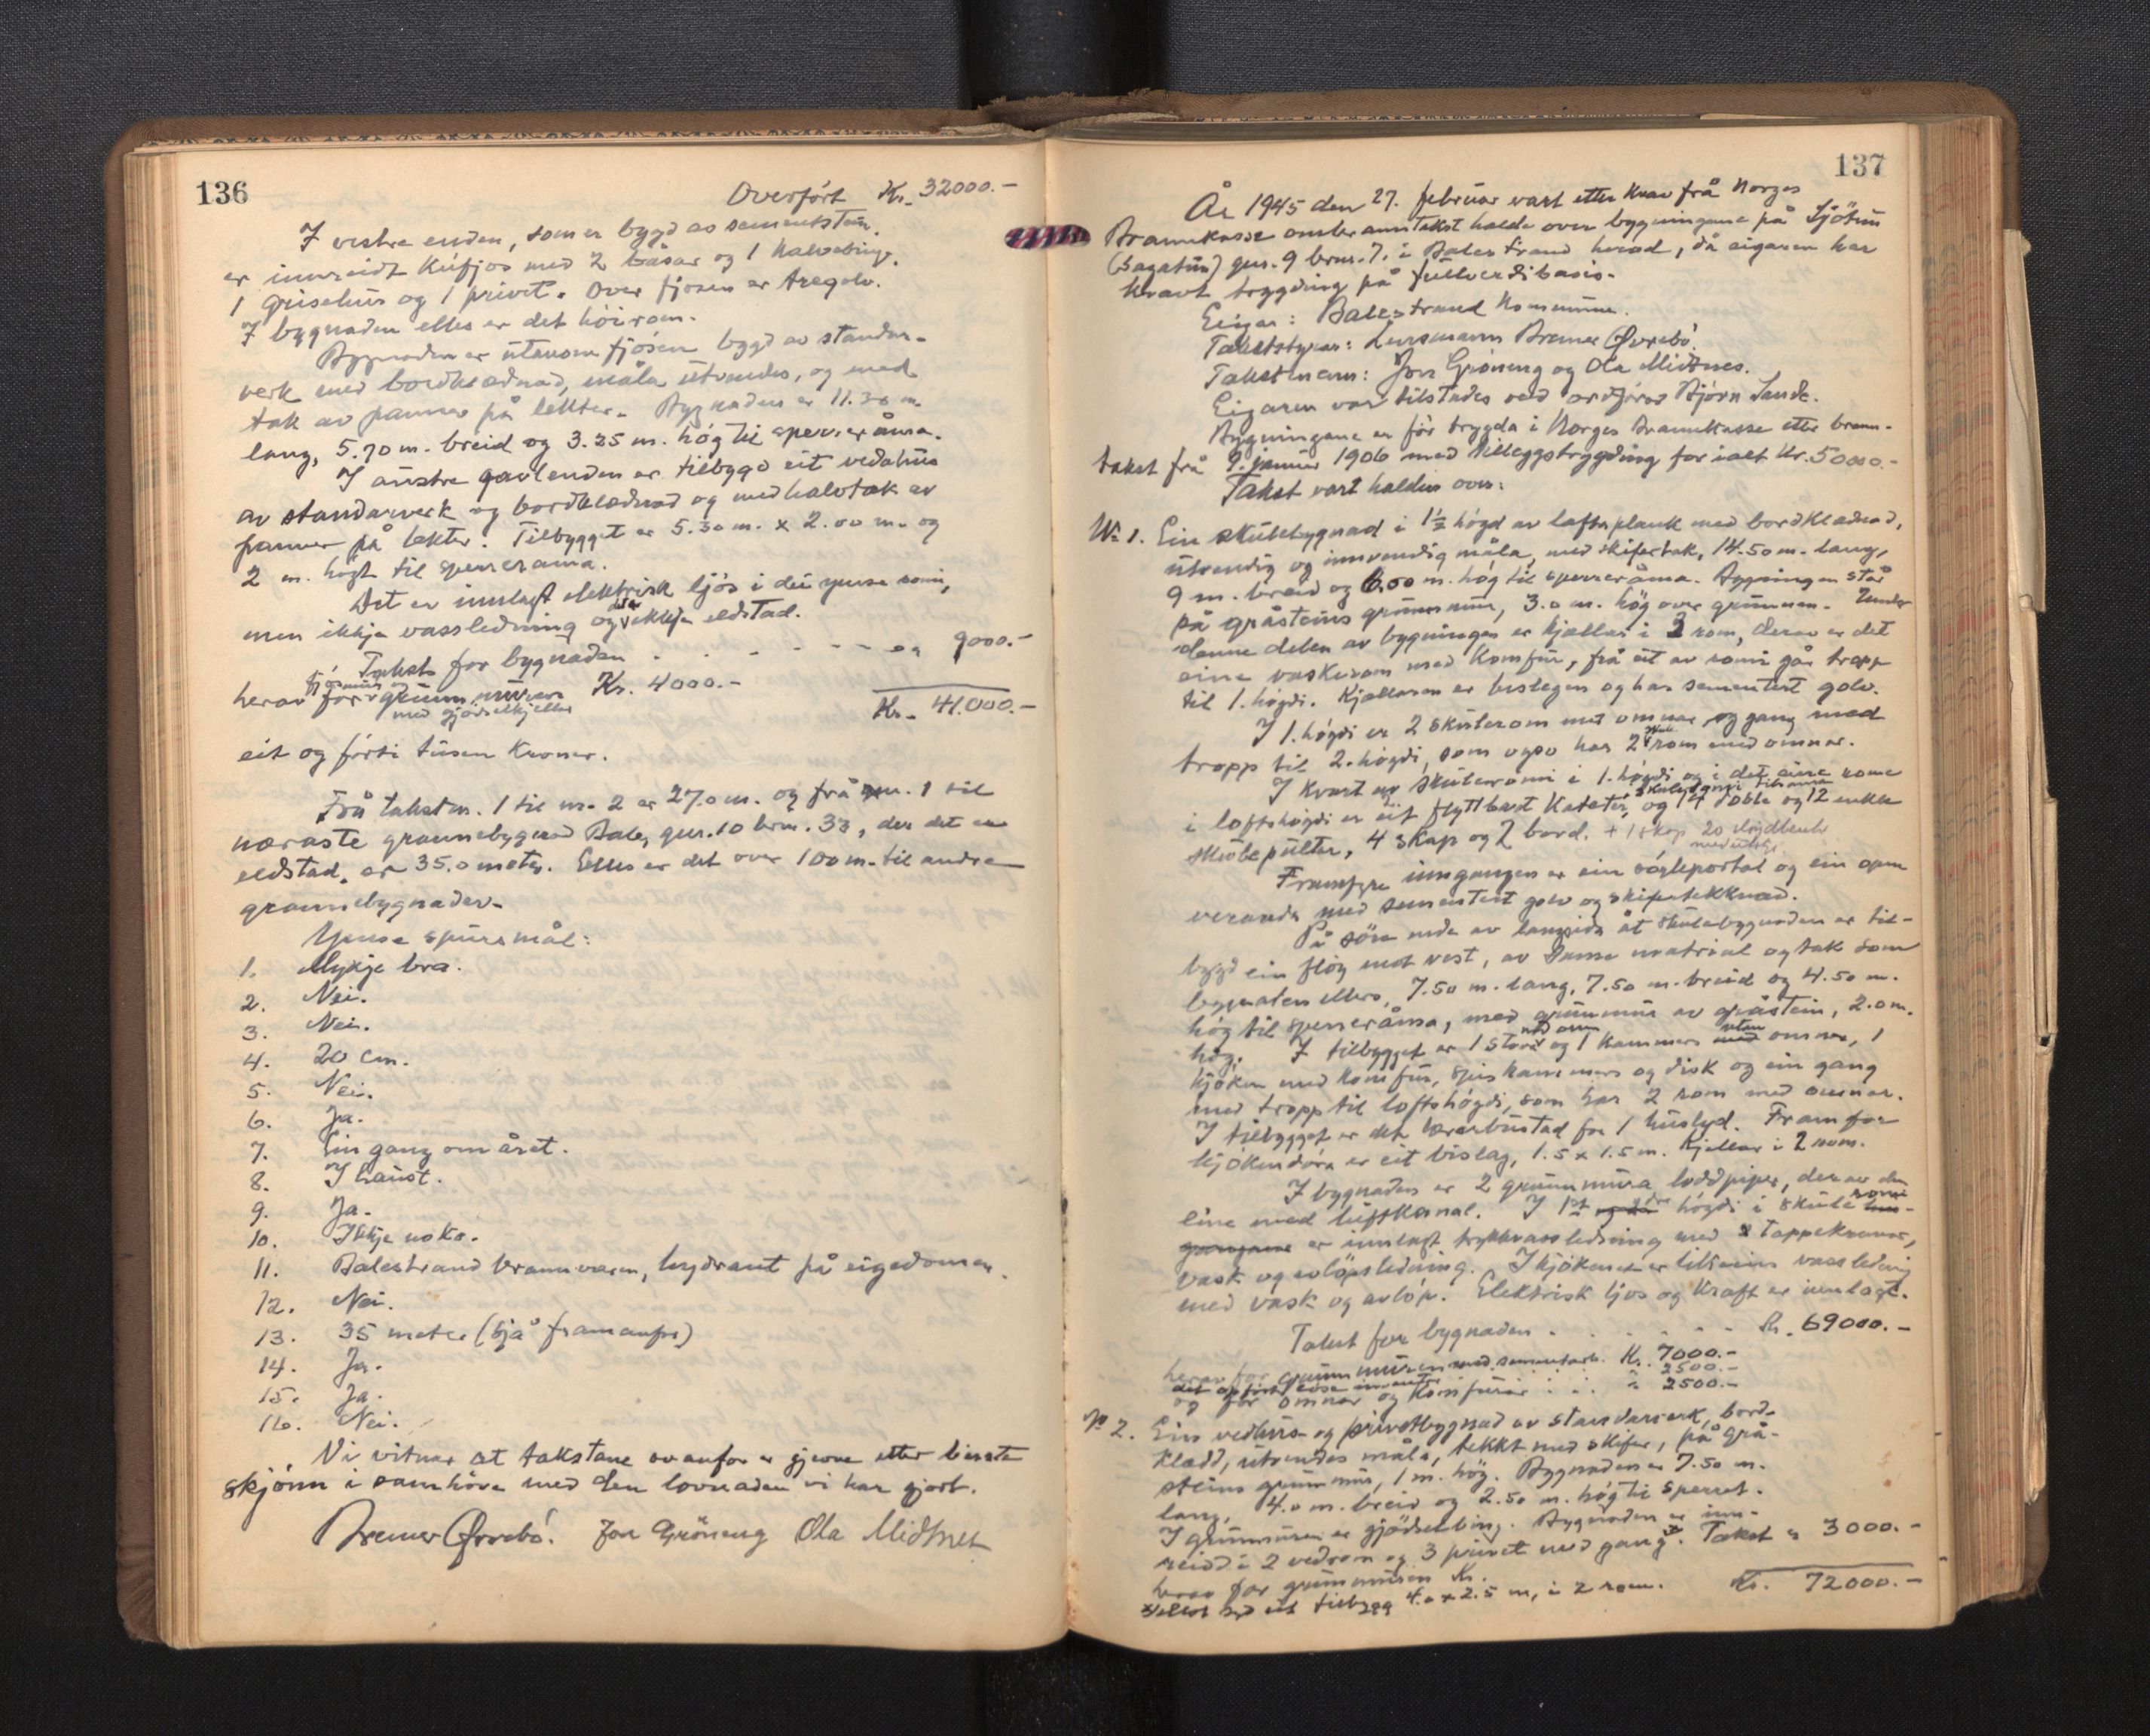 136
Overført Kr. 32000.-
I vestre enden, som er bygd av sementstein,
er innreidt kufjos med 2 båsar og 1 kalvebinge,
1 grisehus og 1 privet. Over fjosen er tregolv.
I bygnaden elles er det höirom.
Bygnaden er utanom fjosen bygd av standar-
verk med bordklædnad, måla utvendes, og med
tak av pannor på lekter. Bygnaden er 11.30 m.
lang, 5.70 m. breid og 3.25 m. høg til sperreråma.
I austre gavlenden er tilbygd eit vedahus
av standarverk og bordklædnad og med halvtak av
pannor på lekter. Tilbygget er 5.30 m. x 2.00 m. og
2 m. høgt til sperreråma.
Det er innlagt elektrisk ljos i dei ymse romi,
men ikkje vassledning og det er ikkje eldstad.
Takst for bygnaden . . . - - - " 9000.-
herav for fjosmur og grunnmuren Kr. 4000.-
med gjødselkjellar
Kr. 41.000.-
eit og førti tusen kroner.
Frå takstnr. 1 til nr. 2 er 27.0 m. og frå nr. 1 til
næraste grannebygnad Bale, gnr. 10 brnr. 33, der det er
eldstad, er 35.0 meter. Elles er det over 100 m. til andre
grannebygnader.
Ymse spursmål:
1. Mykje bra.
2. Nei.
3. Nei.
4. 20 cm.
5. Nei.
6. Ja.
7. Ein gang om året.
8. I haust.
9. Ja.
10. Ikkje noko.
11. Balestrand brannvæsen, hydrant på eigedomen.
12. Nei.
13. 35 meter (sjå framanfor)
14. Ja.
15. Ja.
16. Nei.
Vi vitnar at takstane ovanfor er gjevne etter beste
skjønn i samhøve med den lovnaden vi har gjort.
Bremer Øvrebø. Jon Gröneng Ola Midtnes
137
År 1945 den 27. februar vart etter krav frå Norges
Brannkasse omtaksт halde over bygningane på Sjötun
(Sagatun) gnr. 9 brnr. 7. i Balestrand herad, då eigaren har
kravt trygding på fullverdibasis.
Eigar: Balestrand kommune.
Takststyrar: Lensmann Bremer Øvrebø.
Takstmenn: Jon Gröneng og Ola Midtnes.
Eigaren var tilstades ved ordförar Björn Sande.
Bygningane er för trygda i Norges Brannkasse etter brann-
takst frå 9. januar 1906 med tilleggstrygding for ialt Kr. 5000.-
Takst vart halden over:
№ 1. Ein skulebygnad i 1½ høgd av lafta plank med bordklædnad,
utvendig og innvendig måla, med skifertak, 14.50 m. lang,
9 m. breid og 6.00 m. høg til sperreråma. Bygningen står
på gråsteins grunnmur, 3.0 m. høg over grunnen. Under
denne delen av bygningen er kjellar i 3 rom, derav er det
eine vaskerom med komfur, frå eit av romi går tropp
til 1. høgdi. Kjellaren er beslegen og har sementert golv.
I 1. høgdi er 2 skulerom med omnar og gang med
tropp til 2. høgdi, som også har 2 rom med omnar.
I kvart av skuleromi i 1. høgdi og i det eine rome
i loftshøgdi er eit flyttbart kateter, og 14 doble og 12 enkle
skulepulter, 4 skap og 2 bord. + 1 skap 20 sløydbenk
Framfyre inngangen er ein søyleportal og ein open
veranda med sementert golv og skifertekknad.
På søre enda av langsida åt skulebygnaden er til-
bygd ein fløy mot vest, av same matrial og tak som
bygnaden elles, 7.50 m. lang, 7.50 m. breid og 4.50 m.
høg til sperreråma, med grunnmur av gråstein, 2.0 m.
høg. I tilbygget er 1 stova med omn og 1 kammers utan omnar, 1
kjøken med komfur, spiskammers og disk og ein gang
med tropp til loftshøgdi, som har 2 rom med omnar.
I tilbygget er det lærarbustad for 1 huslyd. Framfor
kjøkendøra er eit bislag, 1.5 x 1.5 m. Kjellar i 2 rom.
I bygnaden er 2 grunnmura loddpiper, derav den
eine med luftkanal. I 1st høgdi i skule romi
er innlagt trykkvassledning med 2 tappekraner,
vask og avløpsledning. I kjøkenet er likeeins vassledning
med vask og avløp. Elektrisk ljos og kraft er innlagt.
Takst for bygnaden . . . . - - Kr. 69000.-
herav for grunnmuren med sementarb. Kr. 7000.-
" 2500.-
og for omnar og komfurar . . . " 2500.-
№ 2. Ein vedhus og privetbygnad av standarverk, bord-
klædd, utvendes måla, tekkt med skifer, på grå-
steins grunnmur, 1 m. høg. Bygnaden er 7.50 m.
lang, 4.0 m. breid og 2.50 m. høg til sperret.
I grunnmuren er gjødselbing. Bygnaden er inn-
reidd i 2 vedrom og 3 privet med gang. Takst " 3000.-
herav for grunnmuren Kr.
eit tilbygg 4.0 x 2.5 m, i 2 rom. Kr. 72000.-